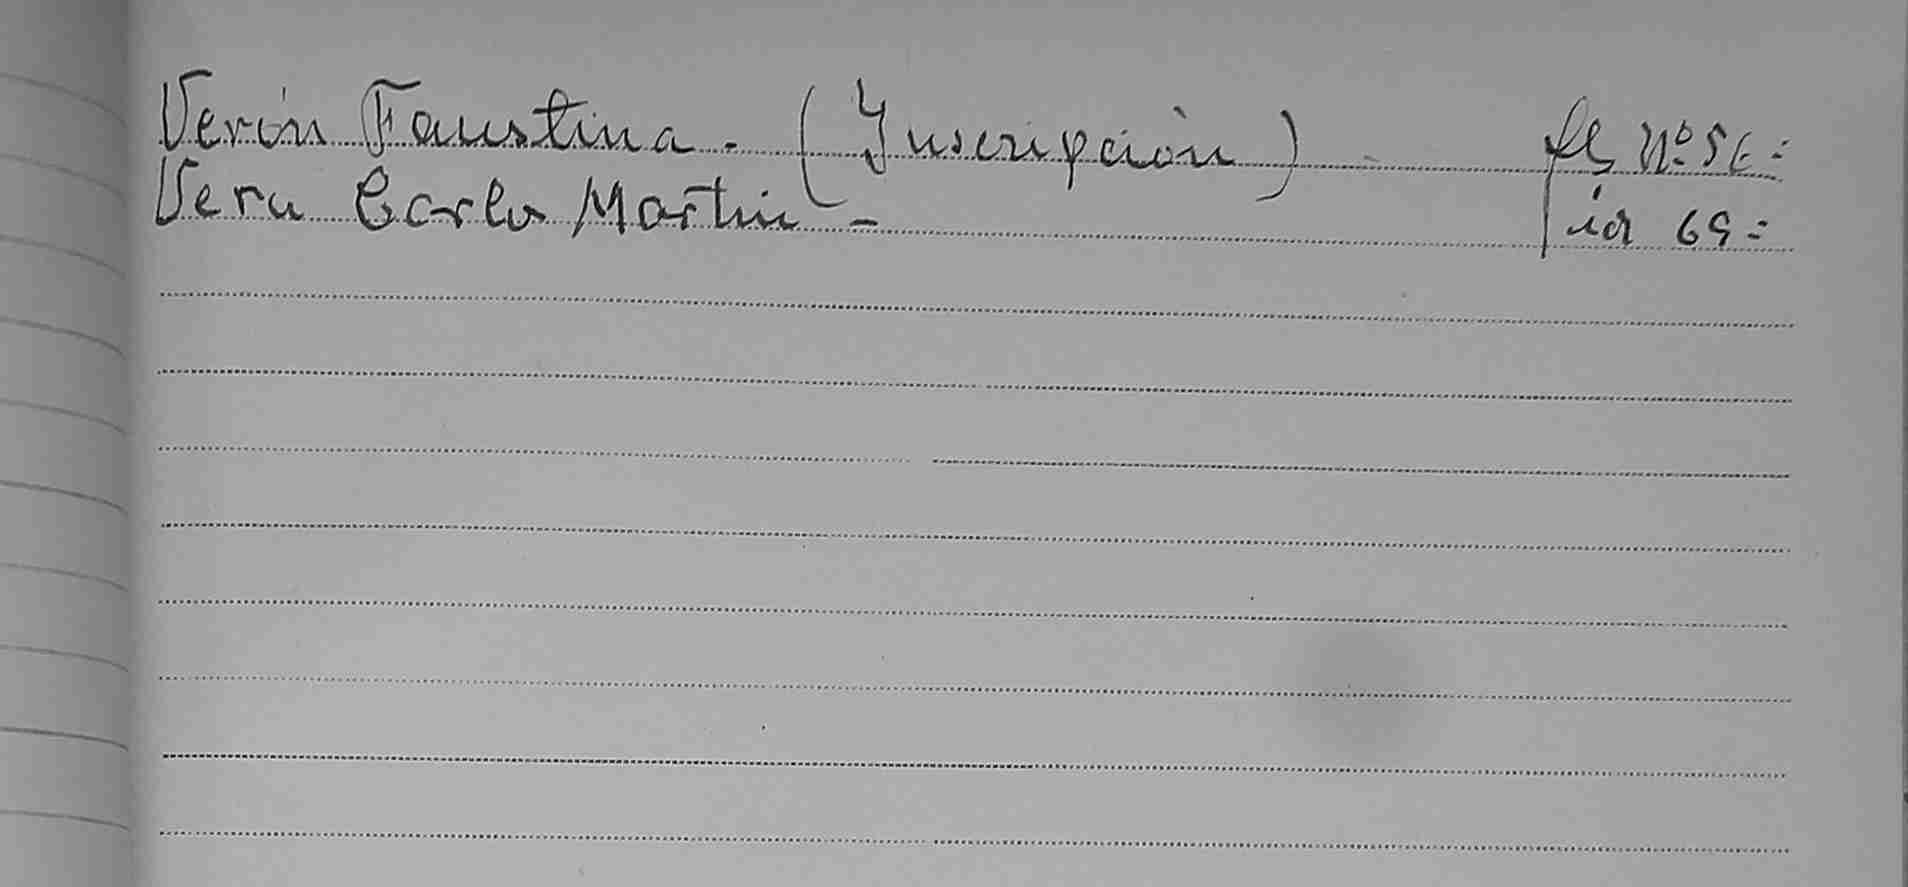 Verón Faustina - (Inscripción) - fl Nº 56 =
Vera Carlos Martin - id 69 =